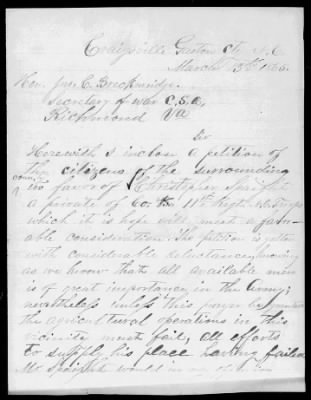 Craigsville Gaston Cty N.C.
March 13th 1865.
Hon. Jno C. Breckinridge
Secretary of war C.S.A.
Richmond Va
Sir
Herewith I inclose a petition of
the citizens of the surrounding
country
in favor of Christopher Speight
a private of Co. 11th Regt N.C. Troops
which it is hope will meet a favor-
able consideration. The petition is gotten
with considerable reluctance, knowing
as we know that all available men
is of great importance in the army;
nevertheless unless this prayer be granted
the agricultural operations in this
vicinity must fail, all efforts
to supply his place having failed
Mr Speight would in